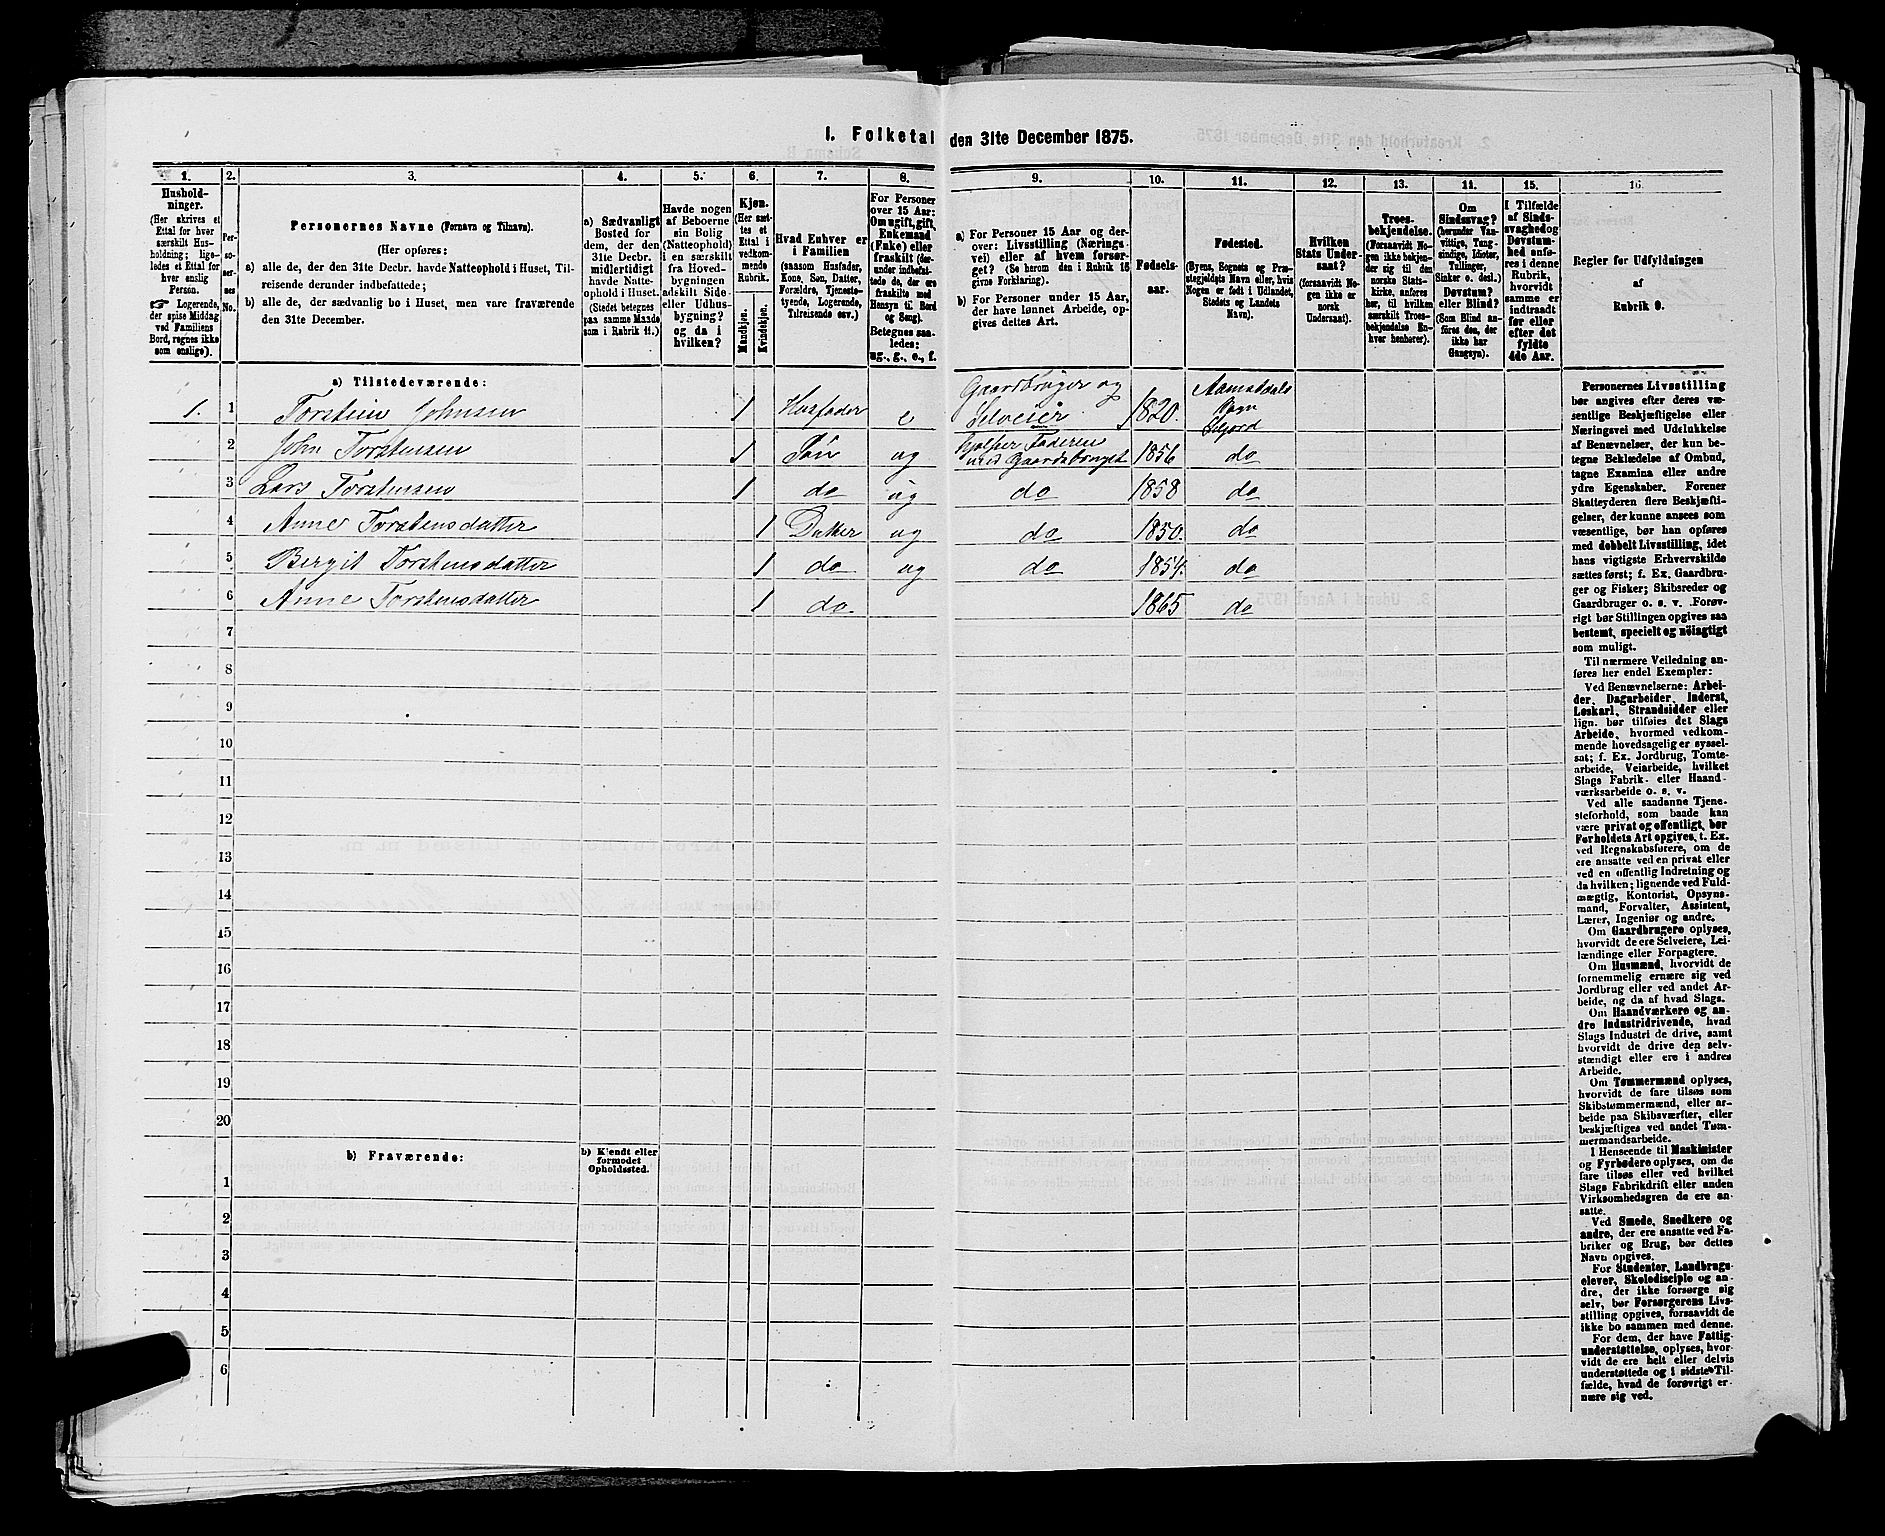 I. Folketal den 31te December 1875.
1.
2.
3.
4.
5.
6.
7.
8.
9.
10.
11.
12.
13.
14.
15.
16.
Hushold-
ninger.
(Her skrives et
Ettal for hver
særskilt Hus-
holdning; lige-
ledes et Ettal for
hver enslig
Person.
☞ Logerende,
der spise Middag
ved Familiens
Bord, regnes ikke
som enslige).
Per-
so-
ner-
nes
No.
Personernes Navne (Fornavn og Tilnavn).
(Her opføres:
a) alle de, der den 31te Decbr. havde Natteophold i Huset, Til-
reisende derunder indbefattede;
b) alle de, der sædvanlig bo i Huset, men vare fraværende
den 31te December.
a) Sædvanligt
Bosted for
dem, der den
31te Decbr.
midlertidigt
havde Natte-
ophold i Huset.
(Stedet betegnes
paa samme Maade
som i Rubrik 11.)
Havde nogen
af Beboerne
sin Bolig
(Natteophold)
i en særskilt
fra Hoved-
bygningen
adskilt Side-
eller Udhus-
bygning?
og da i
hvilken?
Kjøn.
(Her sæt-
tes et
Ettal i
vedkom-
mende
Rubrik.
Mandkjøn.
Kvindekjøn.
Hvad Enhver er
i Familien
(saasom Husfader,
Kone, Søn, Datter,
Forældre, Tjeneste-
tyende, Logerende,
Tilreisende osv.)
For Personer
over 15 Aar:
Om ugift, gift,
Enkemand
(Enke) eller
fraskilt (der-
under indbefat-
tede de, der ere
fraskilte med
Hensyn til Bord
og Seng).
Betegnes saa-
ledes:
ug., g., e., f.
a) For Personer 15 Aar og der-
over: Livsstilling (Nærings-
vei) eller af hvem forsør-
get? (Se herom den i Rubrik 16
givne Forklaring).
b) For Personer under 15 Aar,
der have lønnet Arbeide, op-
gives dettes Art.
Fødsels-
aar.
Fødested.
(Byens, Sognets og Præ-
stegjeldets Navn eller, hvis
Nogen er født i Udlandet,
Stedets og Landets
Navn).
Hvilken
Stats Under-
saat?
(forsaavidt No-
gen ikke er
norsk
Undersaat).
Troes-
bekjendelse.
(Forsaavidt No-
gen ikke bekjen-
der sig til den
norske Stats-
kirke, anføres
her, til hvilken
særskilt Troes-
bekjendelse En-
hver henhører).
Om
Sindssvag?
(herunder Van-
vittige, Tung-
sindige, Idioter,
Tullinger,
Sinker o. desl.)
Døvstum?
eller Blind?
(Som Blind an-
føres den, der
ikke har
Gangsyn).
I Tilfælde
af Sinds-
svaghed og
Døvstum-
hed anfø-
res i denne
Rubrik,
hvorvidt
samme er
indtraadt
før eller
efter det
fyldte
4de Aar.
Regler for Udfyldningen
af
Rubrik 9.
a) Tilstedeværende:
1. 1 Torstein Johnsen 1 Husfader e Gaardbruger og
Selveier 1820. Aamotsdals
Sogn
Seljord
2 John Torstensen 1 Søn ug hjælper Faderen
med Gaardsbruget 1856 do
3 Lars Torstensen 1 do ug do 1858 do
4 Anne Torstensdatter 1 Datter ug do 1850. do
5 Bergit Torstensdatter 1 do ug do 1854. do
6 Anne Torstensdatter 1 do 1865 do
7
8
9
10
11
12
13
14
15
16
17
18
19
20
b) Fraværende:
b) Kjendt eller
formodet
Opholdssted.
1
2
3
4
5
6
Personernes Livsstilling
bør angives efter deres væ-
sentlige Beskjæftigelse eller
Næringsvei med Udelukkelse
af Benævnelser, der kun be-
tegne Beklædelse af Ombud,
tagne Examina eller andre
ydre Egenskaber. Forener
Skatteyderen flere Beskjæfti-
gelser, der kunne ansees som
væsentlige, bør han opføres
med dobbelt Livsstilling, idet
hans vigtigste Erhvervskilde
sættes først; f. Ex. Gaardbru-
ger og Fisker; Skibsreder og
Gaardbruger o. s. v. Forøv-
rigt bør Stillingen opgives saa
bestemt, specielt og nøiagtigt
som muligt.
Til nærmere Veiledning an-
føres her endel Exempler:
Ved Benævnelserne: Arbei-
der, Dagarbeider, Inderst,
Løskarl, Strandsidder eller
lign. bør tilføies det Slags
Arbeide, hvormed vedkom-
mende hovedsagelig er syssel-
sat; f. Ex. Jordbrug, Tomte-
arbeide, Veiarbeide, hvilket
Slags Fabrik- eller Haand-
værksarbeide o. s. v.
Ved alle saadanne Tjene-
steforhold, som baade kan
være privat og offentligt, bør
Forholdets Art opgives, t. Ex.
ved Regnskabsførere, om de
ere ansatte ved en privat eller
ved en offentlig Indretning og
da hvilken; lignende ved Fuld-
mægtig, Kontorist, Opsyns-
mand, Forvalter, Assistent,
Lærer, Ingeniør og andre.
Om Gaardbrugere oplyses,
hvorvidt de ere Selveiere, Lei-
lændinge eller Forpagtere.
Om Husmænd, hvorvidt de
fornemmelig ernære sig ved
Jordbrug eller ved andet Ar-
beide, og da af hvad Slags.
Om Haandværkere og an-
dre Industridrivende, hvad
Slags Industri de drive, samt
hvorvidt de drive den selv-
stændigt eller ere i andres
Arbeide.
Om Tømmermænd oplyses,
hvorvidt de fare tilsøs som
Skibstømmermænd, eller ar-
beide paa Skibsværfter, eller
beskjæftiges ved andet Tøm-
mermandsarbeide.
I Henseende til Maskinister
og Fyrbødere oplyses, om de
fare tilsøs eller ved hvilket
Slags Fabrikdrift eller anden
Virksomhedsgren de ere an-
satte.
Ved Smede, Snedkere og
andre, der ere ansatte ved Fa-
briker og Brug, bør dettes
Navn opgives.
For Studenter, Landbrugs-
elever, Skoledisciple og an-
dre, der ikke forsørge sig
selv, bør Forsørgerens Livs-
stilling opgives, forsaavidt de
ikke bo sammen med denne.
For dem, der have Fattig-
understøttelse, oplyses, hvor-
vidt de ere helt eller delvis
understøttede og i sidste Til-
fælde, hvad de forøvrigt er-
nære sig ved.